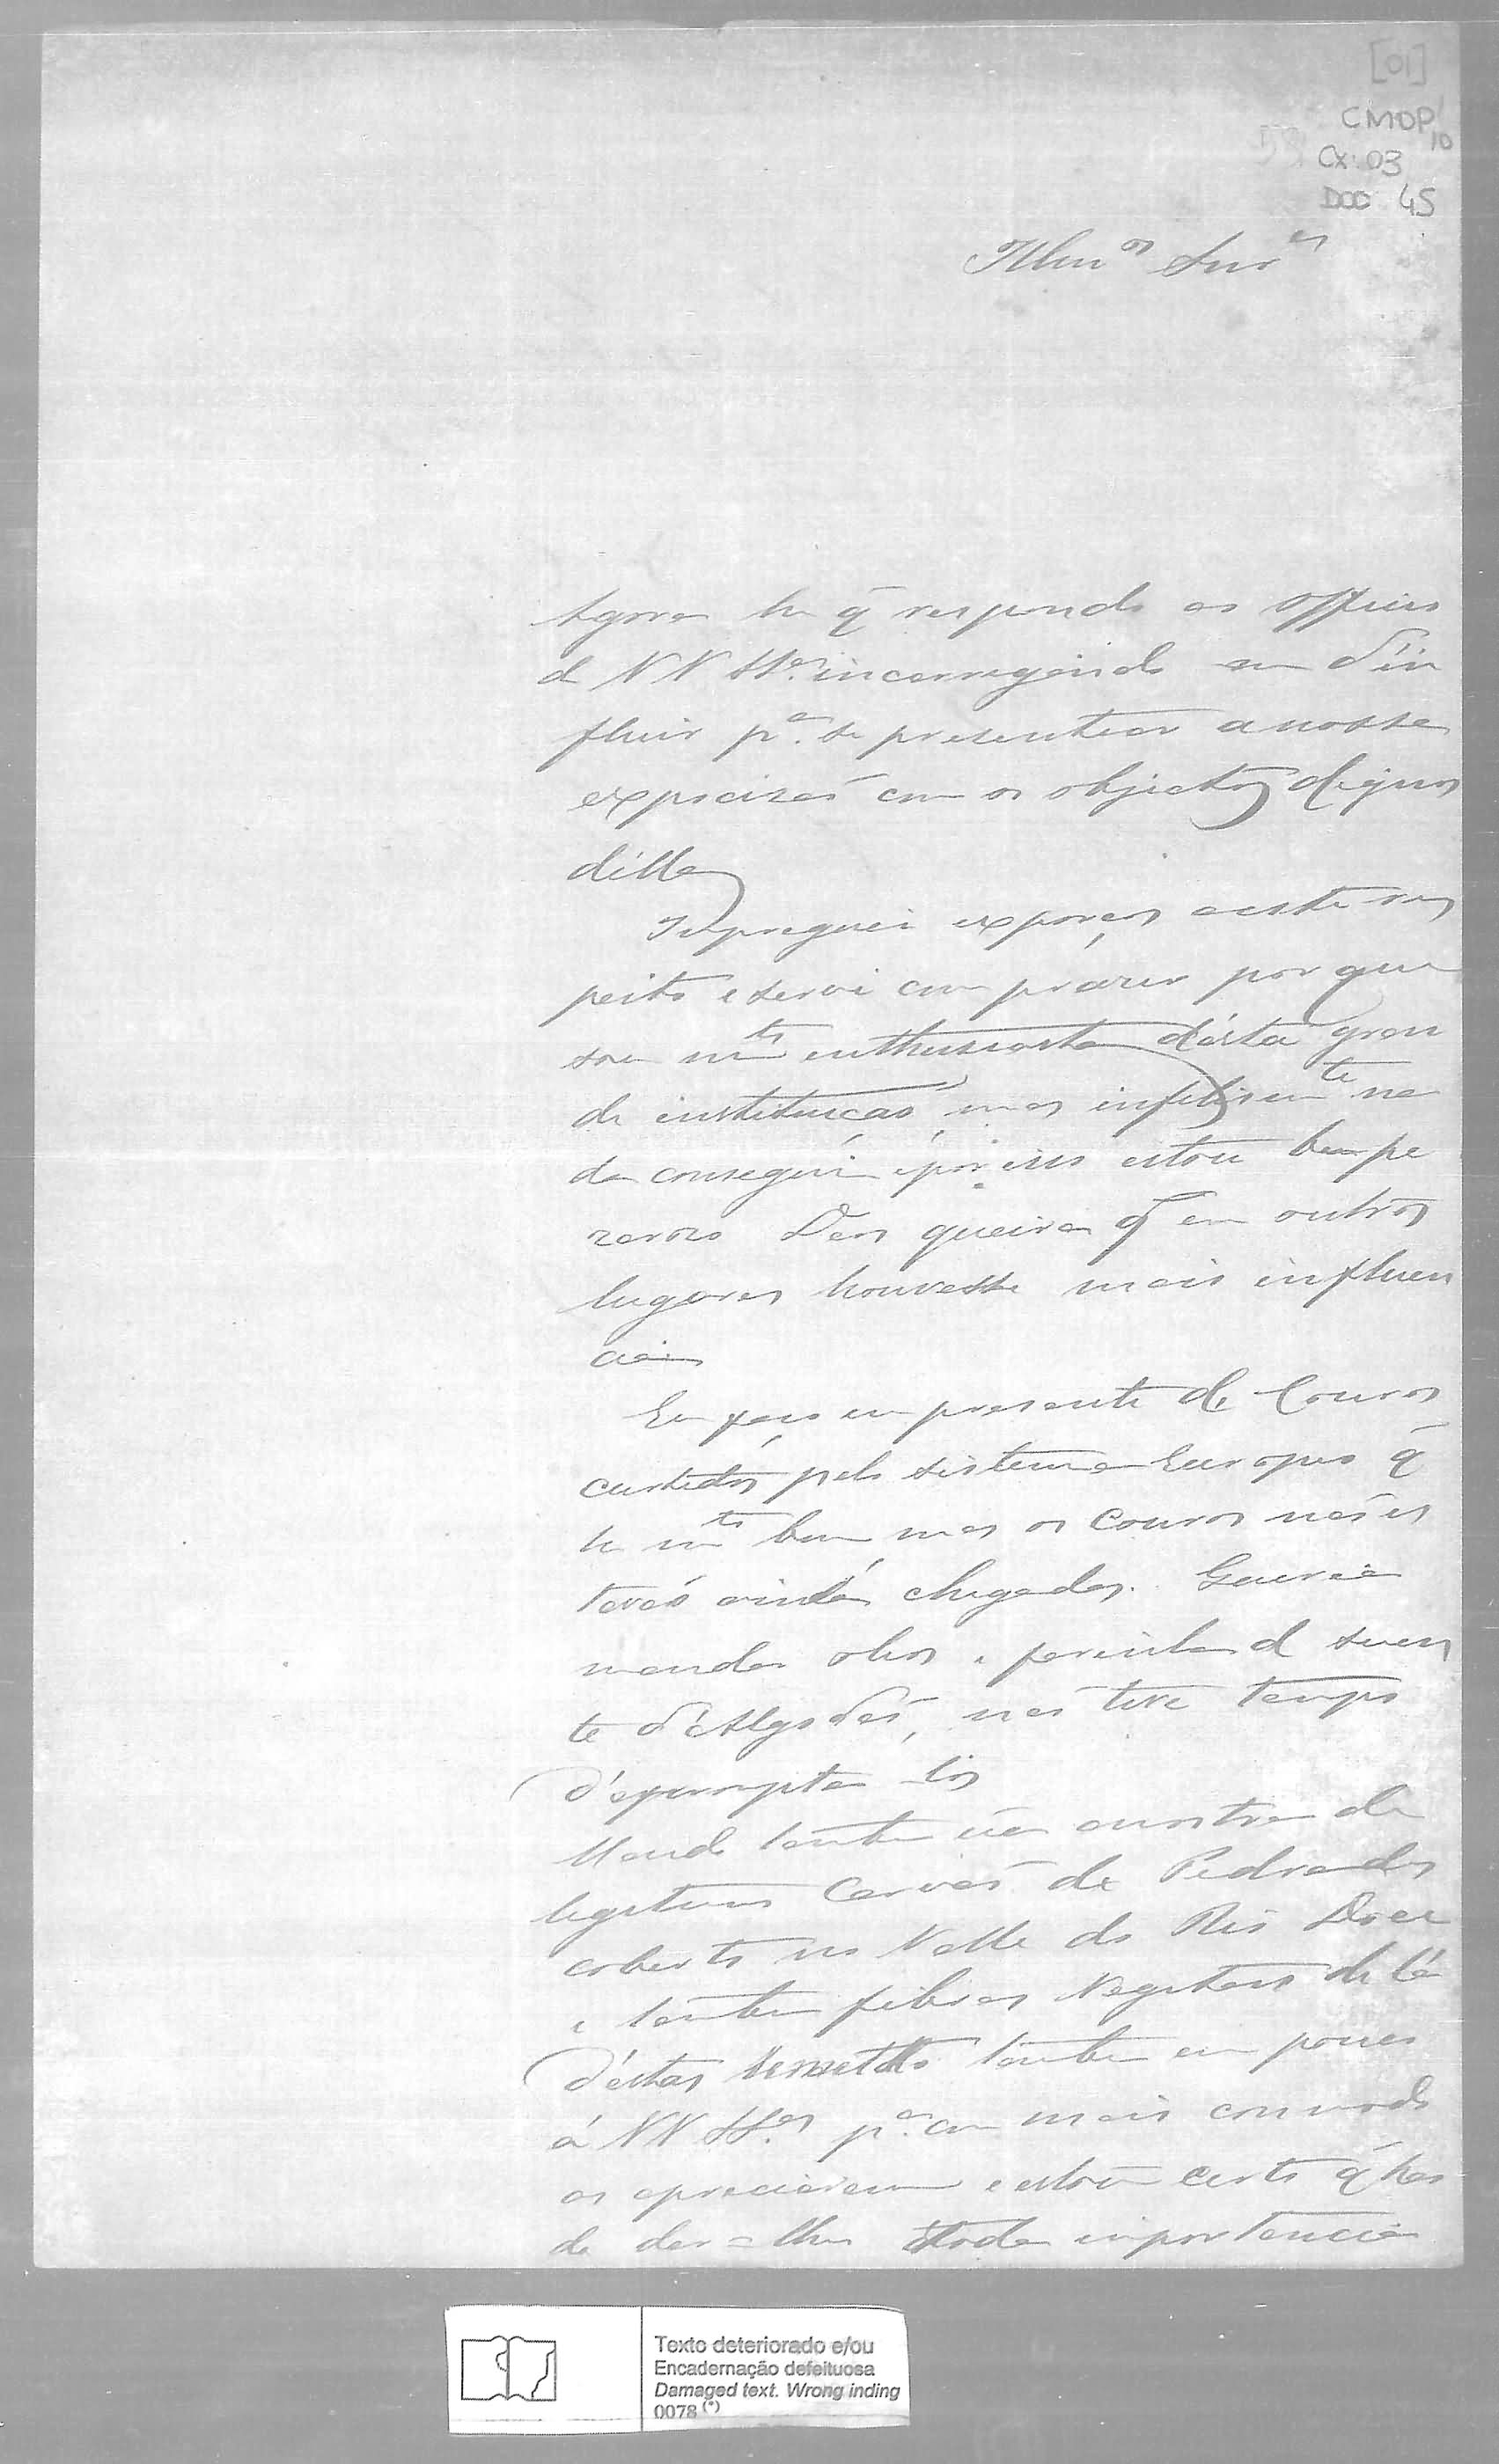 [01]
CMOP
10
Cx: 03
DOC 45
Illmos Snres
Agora he q̃ respondo os officios
de VV SSas incarregando em d'in
fluir pa. se presentear a nossa
expocizaõ com os objectos dignos
délla
porem a este res
peito e servi com prazer por que
sou mto enthusiasta désta gran
de instituicaõ, mas infelismte na
da consegui, e por isso estou bem pe
zarozo Deos queira q̃ em outros
lugares houvesse mais influen
cia
Eu faço um presente de Couros
curtidos pelo sistema Europeo q̃
he mto bem mas os Couros naõ es
tavaõ ainda chegados. Queria
mandar olios, e farinha de semen
te d'Algodaõ, naõ tive tempo
d'aprompta-los
Mando tambem úa amostra de
legitimo Carvaõ de Pedra des
coberto no Valle do Rio Doce
e tambem fibras Vegetaes de lá
d'estas remetto tambem um pouco
á VV SSas pa. com mais commodo
os apreciarem e estou certo q̃ haõ
de dar-lhes toda importancia
Texto deteriorado e/ou
Encadernação defeituosa
Damaged text. Wrong inding
0078 (*)